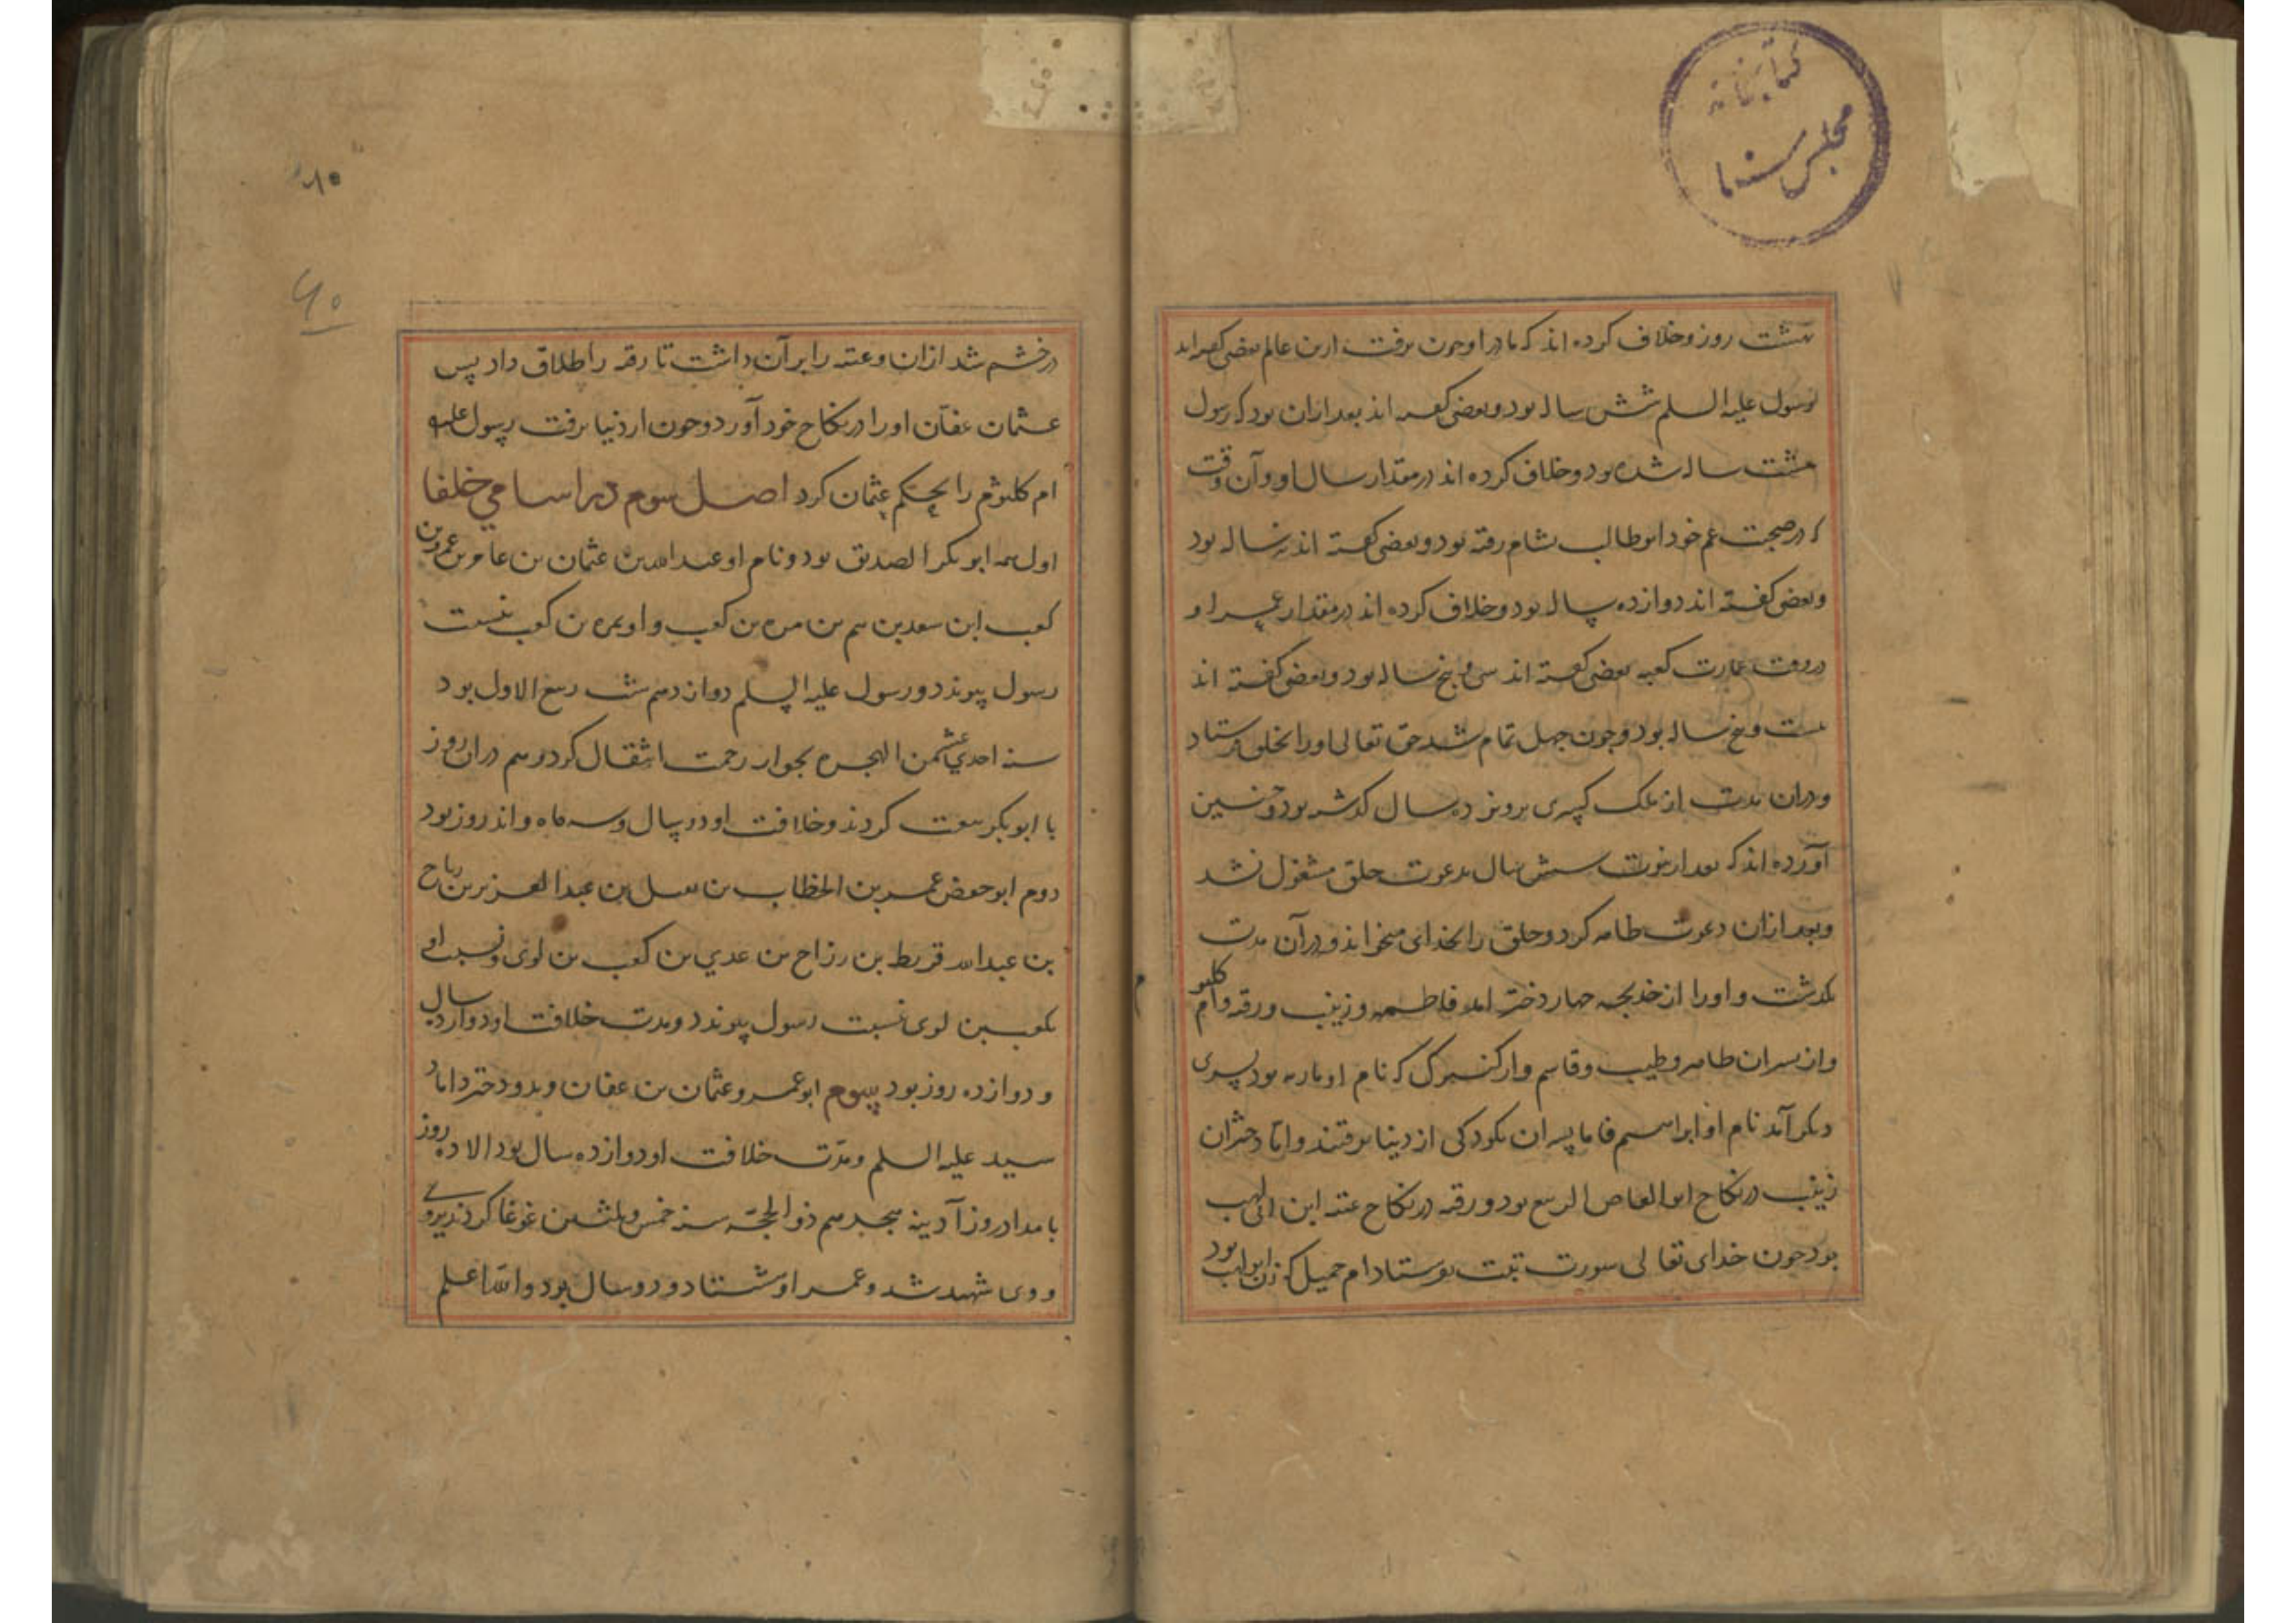 کتابخانه
مجلس سنا
هشت روز و خلاف کرده اند که مادر او چون برفت ازین عالم بعضی گفته اند
رسول علیه السلم شش ساله بود و بعضی گفته اند بعد ازان بود که رسول
هشت ساله شده بود و خلاف کرده اند در مقدار سال او و آن وقت
که در صحبت عم خود ابوطالب بشام رفته بود و بعضی گفته اند نه ساله بود
و بعضی گفته اند دوازده ساله بود و خلاف کرده اند در مقدار عمر او
در وقت عمارت کعبه بعضی گفته اند سی و پنج ساله بود و بعضی گفته اند
بیست و پنج ساله بود و چون چهل تمام شد حق تعالی او را بخلق فرستاد
و دران مدت از ملک کسری پرویز ده سال گذشته بود و چنین
آورده اند که بعد از نبوت سه سال بدعوت خلق مشغول نشد
و بعد ازان دعوت ظاهر کرد و خلق را بخدای میخواند و در آن مدت
بگذشت و او را از خدیجه چهار دختر آمد فاطمه و زینب و رقیه و ام کلثو
و از پسران طاهر و طیب و قاسم و از کنیزک که نام او ماریه بود پسری
دیگر آمد نام او ابراهیم فاما پسران بکودکی از دنیا برفتند و اما دختران
زینب در نکاح ابو العاص الربیع بود و رقیه در نکاح عتبه ابن ابی لهب
بود چون خدای تعالی سورت تبت بفرستاد ام جمیل که زن ابولهب بود
۶۰
در خشم شد ازان و عتبه را برآن داشت تا رقیه را طلاق داد پس
عثمان عفان او را در نکاح خود آورد و چون از دنیا برفت رسول علیه
ام کلثوم را بحکم عثمان کرد اصل سوم در اسامی خلفا
اول همه ابو بکر الصدیق بود و نام او عبد الله بن عثمان بن عامر بن عمرو بن
کعب ابن سعد بن تیم بن مره بن کعب و او بمره بن کعب بنسبت
رسول پیوندد و رسول علیه السلم دوازدهم شب ربیع الاول بود
سنه احدی عشر من الهجره بجوار رحمت انتقال کرد و هم دران روز
با ابو بکر بیعت کردند و خلافت او دو سال و سه ماه و اند روز بود
دوم ابو حفص عمر بن الخطاب بن نفیل بن عبد العزیز بن رباح
بن عبد الله قریط بن رزاح بن عدی بن کعب بن لوی و نسبت او
بکعب بن لوی نسبت رسول پیوندد و مدت خلافت او دوازده سال
و دوازده روز بود سوم ابو عمرو عثمان بن عفان و بدو دختر داماد
سید علیه السلم و مدت خلافت او دوازده سال بود الا ده روز
بامداد روز آدینه هجدهم ذو الحجه سنه خمس و ثلثین غوغا کردند بروی
و وی شهید شد و عمر او هشتاد و دو سال بود والله اعلم